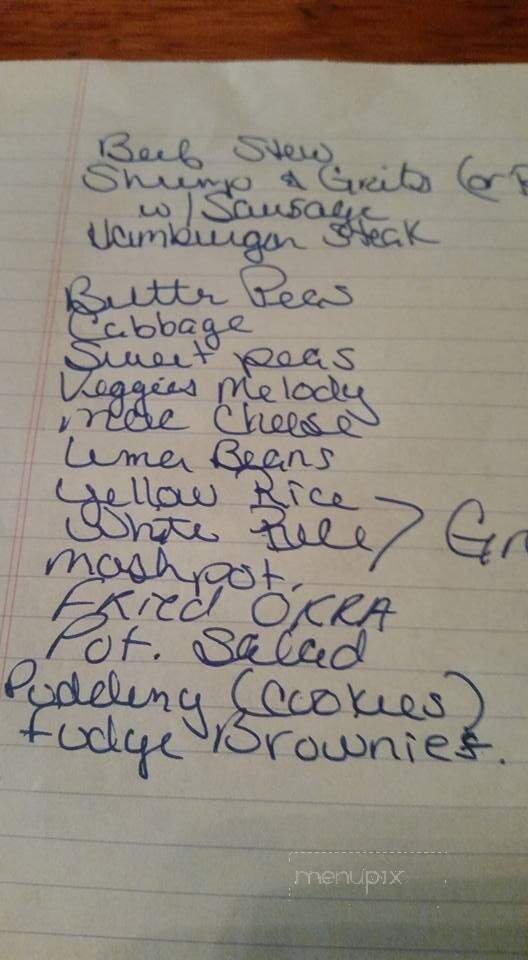 Beef Stew
Shrimp & Grits (or
w/ Sausage
Hamburger Steak
Butter Peas
Cabbage
Sweet peas
Veggies Melody
Mac Cheese
Lima Beans
Yellow Rice
White Rice > Gr
mash pot.
Fried OKRA
Pot. Salad
Pudding (Cookies)
Fudge Brownies.
menupix